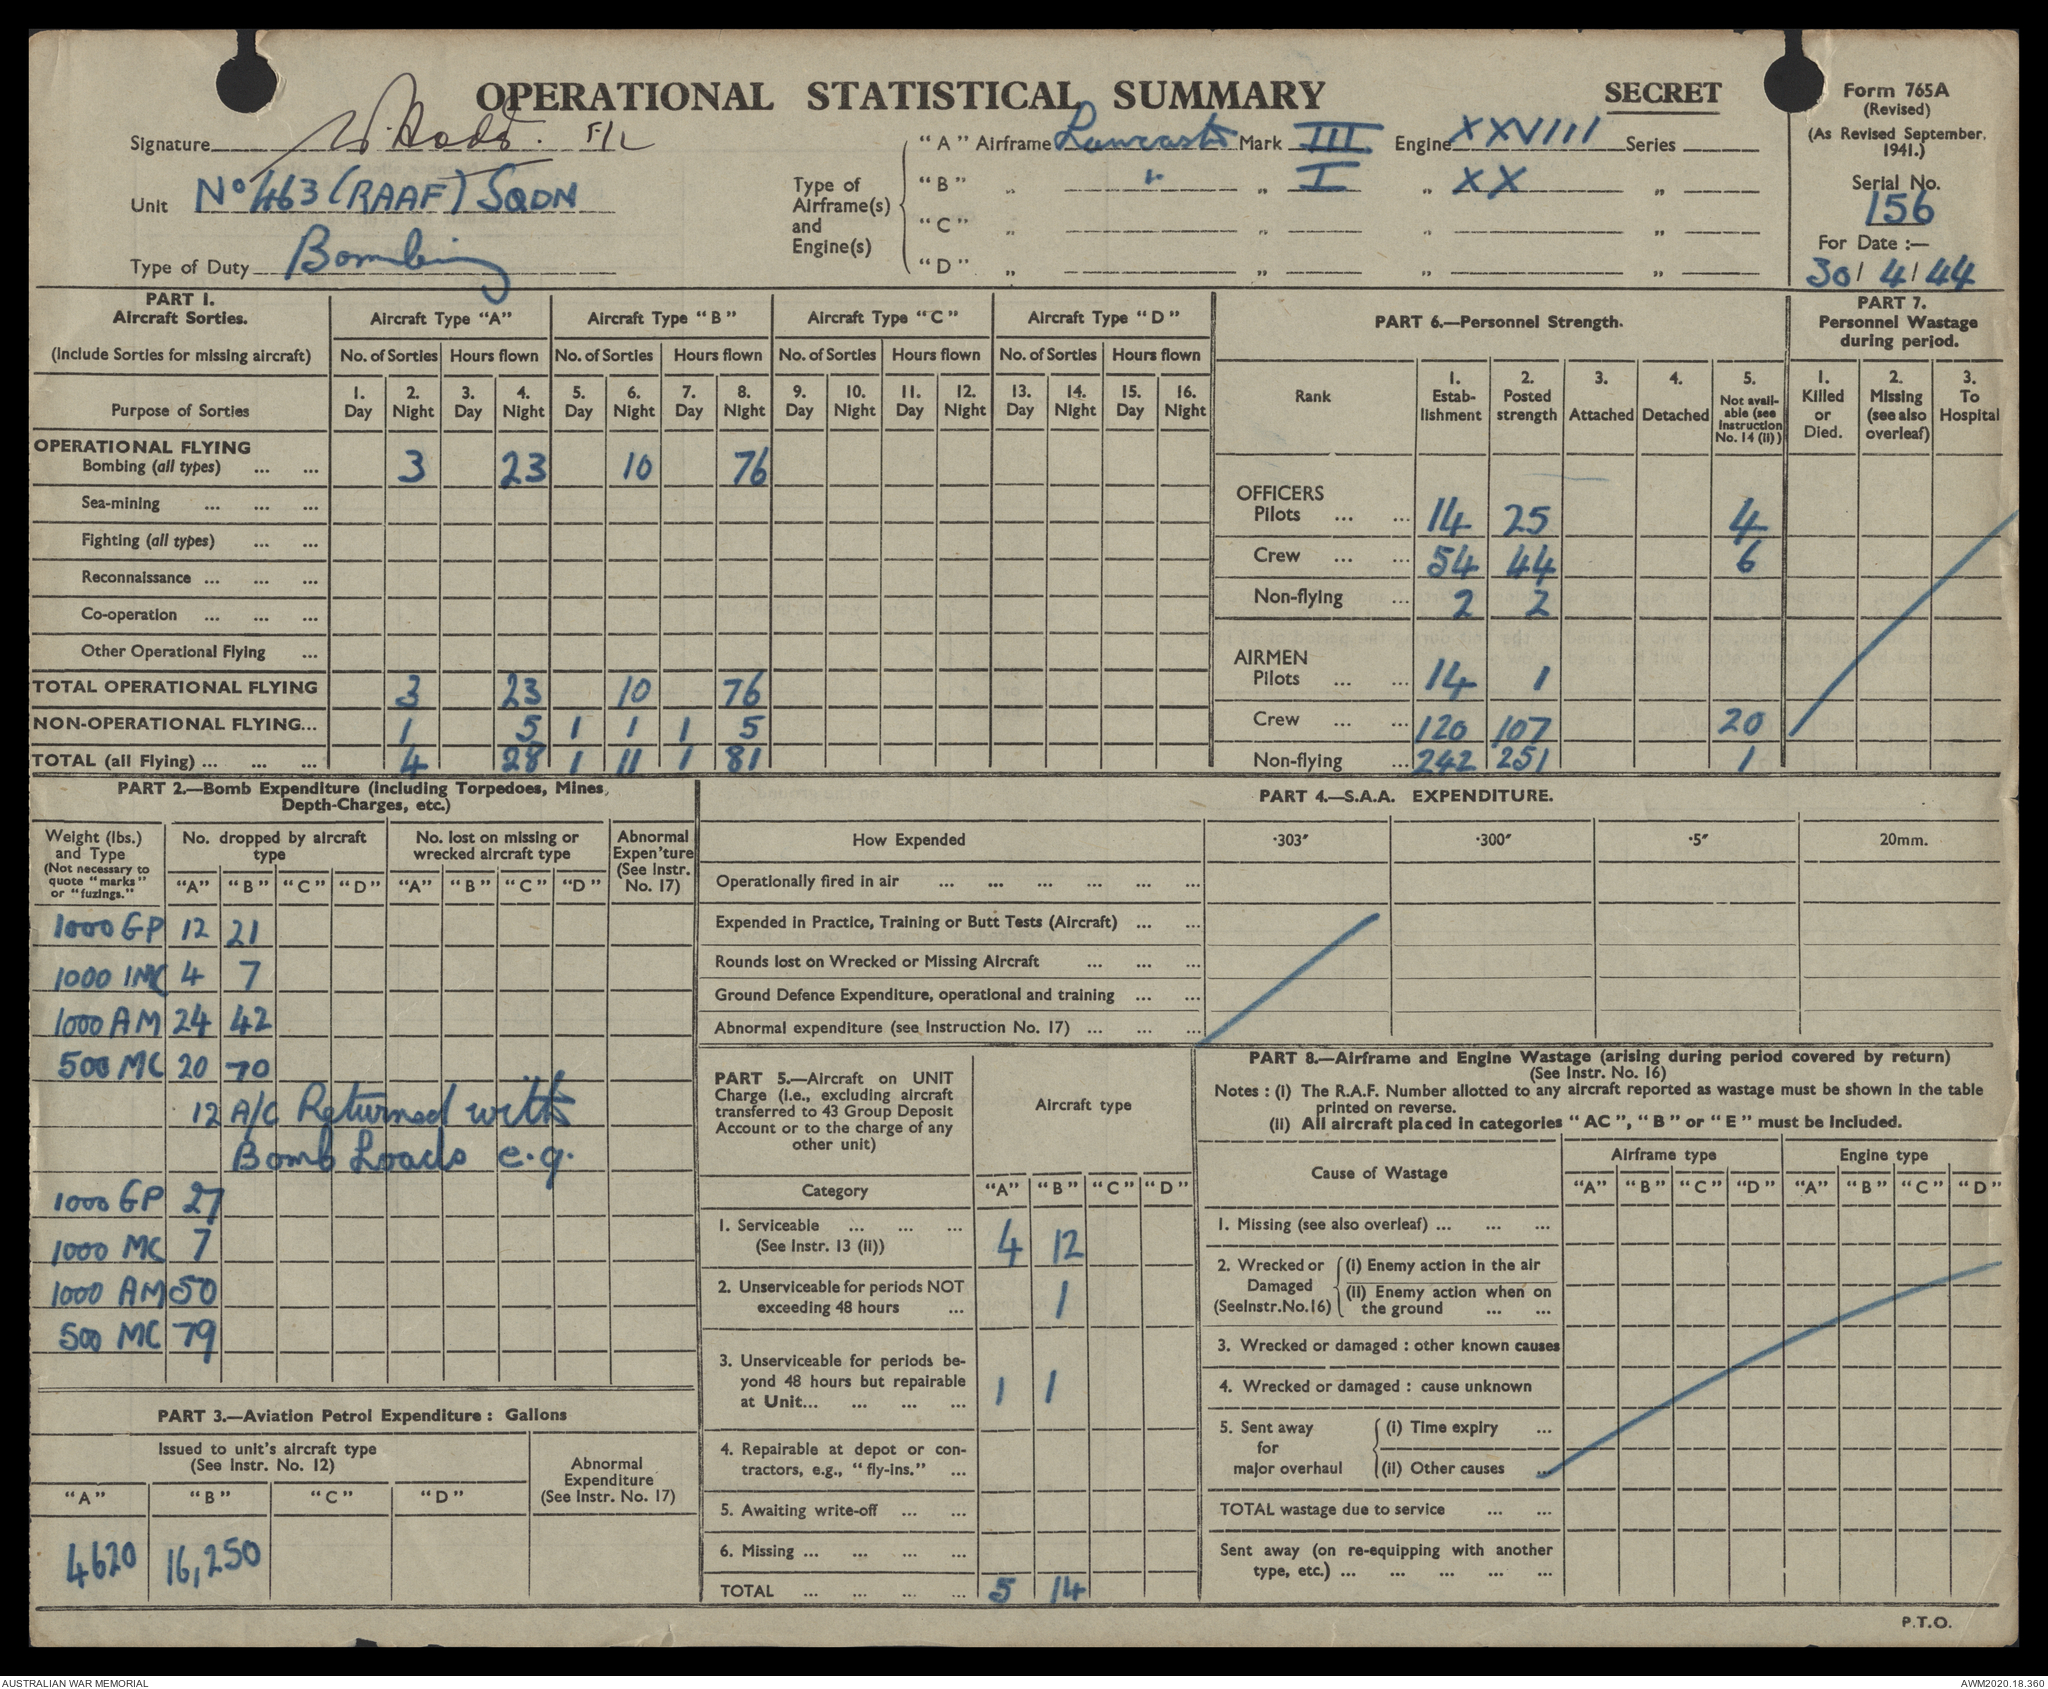 OPERATIONAL STATISTICAL SUMMARY
SECRET
Form 765A
(Revised)
(As Revised September, 1941.)
Serial No.
156
For Date :—
30/ 4/ 44
Signature F/L
Unit No 463 (RAAF) SQDN
Type of Duty Bombing
Type of Airframe(s) and Engine(s)
"A" Airframe Lancaster Mark III Engine XXVIII Series
"B" „ " „ I „ XX „
"C" „ „ „ „
"D" „ „ „ „
PART 1.
Aircraft Sorties.
(Include Sorties for missing aircraft)
Aircraft Type "A" Aircraft Type "B" Aircraft Type "C" Aircraft Type "D"
No. of Sorties Hours flown No. of Sorties Hours flown No. of Sorties Hours flown No. of Sorties Hours flown
Purpose of Sorties
1. 2. 3. 4. 5. 6. 7. 8. 9. 10. 11. 12. 13. 14. 15. 16.
Day Night Day Night Day Night Day Night Day Night Day Night Day Night Day Night
OPERATIONAL FLYING
Bombing (all types) ... ... 3 23 10 76
Sea-mining ... ... ...
Fighting (all types) ... ...
Reconnaissance ... ... ...
Co-operation ... ... ...
Other Operational Flying ...
TOTAL OPERATIONAL FLYING 3 23 10 76
NON-OPERATIONAL FLYING... 1 5 1 1 1 5
TOTAL (all Flying) ... ... ... 4 28 1 11 1 81
PART 6.—Personnel Strength.
Rank
1. Estab-lishment
2. Posted strength
3. Attached
4. Detached
5. Not avail-able (see Instruction No. 14 (ii))
OFFICERS
Pilots ... ... 14 25 4
Crew ... ... 54 44 6
Non-flying ... 2 2
AIRMEN
Pilots ... ... 14 1
Crew ... ... 120 107 20
Non-flying ... 242 251 1
PART 7.
Personnel Wastage
during period.
1. Killed or Died.
2. Missing (see also overleaf)
3. To Hospital
PART 2.—Bomb Expenditure (Including Torpedoes, Mines,
Depth-Charges, etc.)
Weight (lbs.) and Type (Not necessary to quote "marks" or "fuzings."
No. dropped by aircraft type
No. lost on missing or wrecked aircraft type
Abnormal Expen'ture (See Instr. No. 17)
"A" "B" "C" "D" "A" "B" "C" "D"
1000 GP 12 21
1000 1MC 4 7
1000 AM 24 42
500 MC 20 70
12 A/C Returned with
Bomb Loads e.g.
1000 GP 27
1000 MC 7
1000 AM 50
500 MC 79
PART 3.—Aviation Petrol Expenditure : Gallons
Issued to unit's aircraft type
(See Instr. No. 12)
Abnormal Expenditure (See Instr. No. 17)
"A" "B" "C" "D"
4620 16,250
PART 4.—S.A.A. EXPENDITURE.
How Expended ·303" ·300" ·5" 20mm.
Operationally fired in air ... ... ... ... ... ...
Expended in Practice, Training or Butt Tests (Aircraft) ... ...
Rounds lost on Wrecked or Missing Aircraft ... ... ...
Ground Defence Expenditure, operational and training ... ...
Abnormal expenditure (see Instruction No. 17) ... ... ...
PART 5.—Aircraft on UNIT
Charge (i.e., excluding aircraft
transferred to 43 Group Deposit
Account or to the charge of any
other unit)
Aircraft type
Category "A" "B" "C" "D"
1. Serviceable ... ... ...
(See Instr. 13 (ii)) 4 12
2. Unserviceable for periods NOT
exceeding 48 hours ... 1
3. Unserviceable for periods be-
yond 48 hours but repairable
at Unit... ... ... ... 1 1
4. Repairable at depot or con-
tractors, e.g., "fly-ins." ...
5. Awaiting write-off ... ...
6. Missing ... ... ... ...
TOTAL ... ... ... ... 5 14
PART 8.—Airframe and Engine Wastage (arising during period covered by return)
(See Instr. No. 16)
Notes : (i) The R.A.F. Number allotted to any aircraft reported as wastage must be shown in the table
printed on reverse.
(ii) All aircraft placed in categories "AC", "B" or "E" must be included.
Cause of Wastage
Airframe type Engine type
"A" "B" "C" "D" "A" "B" "C" "D"
1. Missing (see also overleaf) ... ... ...
2. Wrecked or Damaged (SeeInstr.No.16)
(i) Enemy action in the air
(ii) Enemy action when on
the ground ... ...
3. Wrecked or damaged : other known causes
4. Wrecked or damaged : cause unknown
5. Sent away for major overhaul
(i) Time expiry ...
(ii) Other causes ...
TOTAL wastage due to service ... ...
Sent away (on re-equipping with another
type, etc.) ... ... ... ... ...
P.T.O.
AUSTRALIAN WAR MEMORIAL
AWM2020.18.360